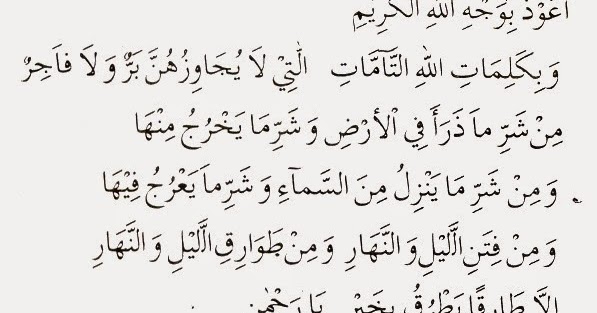 أَعُوْذُ بِوَجْهِ اللهِ الْكَرِيْمِ
وَ بِكَلِمَاتِ اللهِ التَّآمَّاتِ الَّتِيْ لَا يُجَاوِزُهُنَّ بَرٌّ وَ لَا فَاجِرٌ
مِنْ شَرِّ مَا ذَرَأَ فِي الْأَرْضِ وَ شَرِّ مَا يَخْرُجُ مِنْهَا
وَ مِنْ شَرِّ مَا يَنْزِلُ مِنَ السَّمَآءِ وَ شَرِّ مَا يَعْرُجُ فِيْهَا
وَ مِنْ فِتَنِ الَّلَيْلِ وَ النَّهَارِ وَ مِنْ طَوَارِقِ الَّلَيْلِ وَ النَّهَارِ
إِلَّا طَارِقًا يَطْرُقُ بِخَيْرٍ يَا رَحْمٰنُ